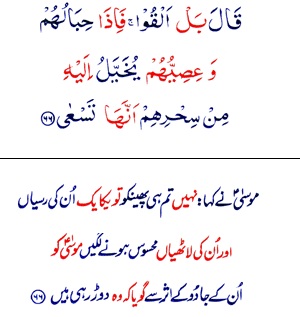 قَالَ بَلْ اَلْقُوْا ۚ فَاِذَا حِبَالُهُمْ
وَ عِصِیُّهُمْ یُخَیَّلُ اِلَیْهِ
مِنْ سِحْرِهِمْ اَنَّهَا تَسْعٰی ﴿۶۶﴾
موسیٰؑ نے کہا: نہیں تم ہی پھینکو تو یکایک اُن کی رسیاں
اور اُن کی لاٹھیاں محسوس ہونے لگیں موسیٰؑ کو
اُن کے جادُو کے اثر سے گویا کہ وہ دوڑ رہی ہیں ﴿۶۶﴾